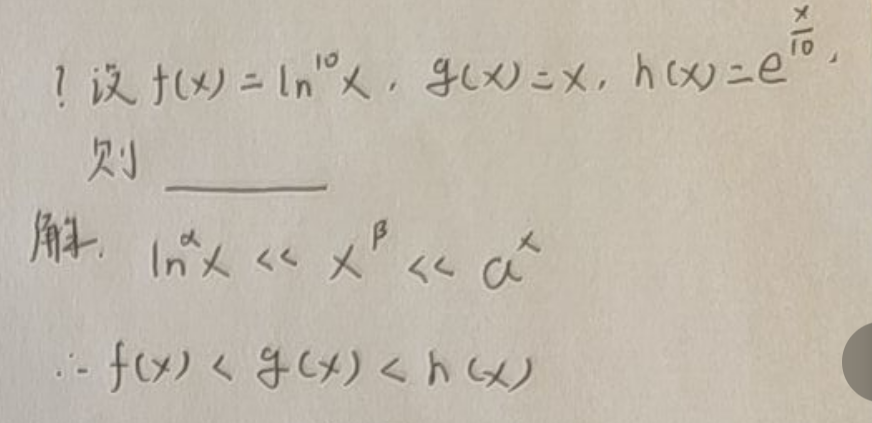 1 设 f(x) = ln¹⁰x, g(x) = x, h(x) = e^{x/10},
则 ______
解. ln^α x << x^β << a^x
∴ f(x) < g(x) < h(x)